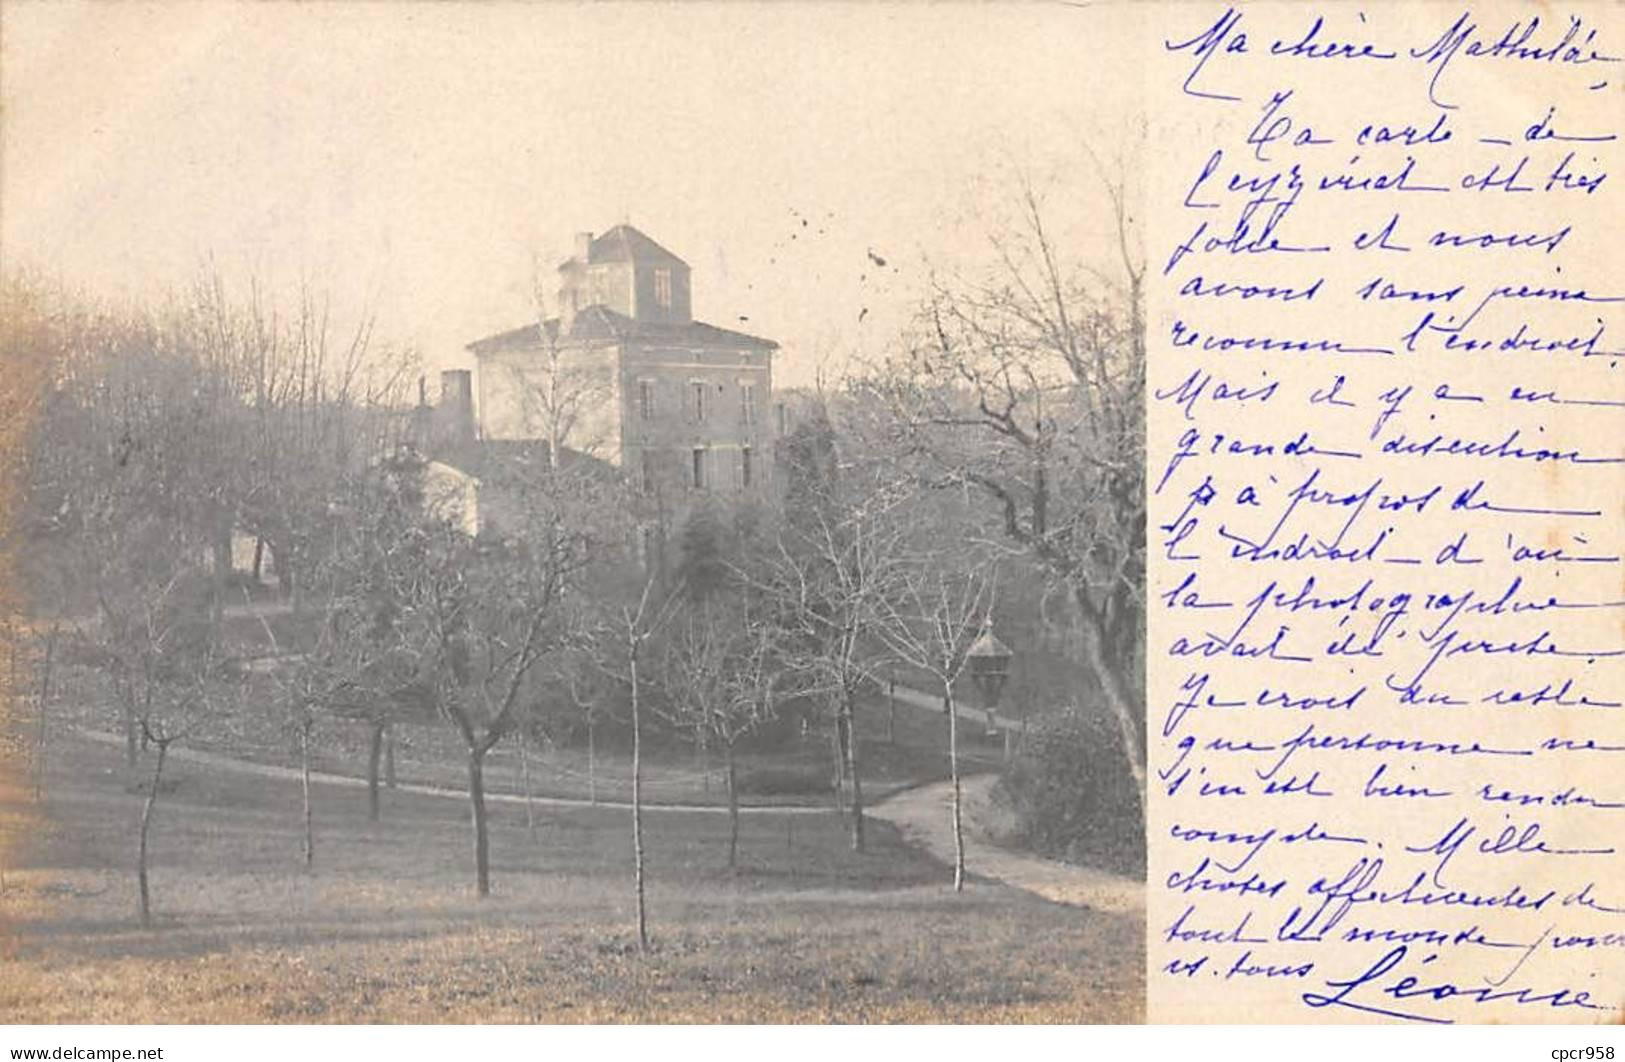 Ma chère Mathilde,
Ta carte de
Leyzériat est très
jolie et nous
avons sans peine
reconnu l'endroit.
Mais il y a eu
grande discution
à propos de
l'endroit d'où
la photographie
avait été prise.
Je crois du reste
que personne ne
s'en est bien rendu
compte. Mille
choses affectueuses de
tout le monde pour
vs. tous Léonie
Delcampe.net
cpcr958